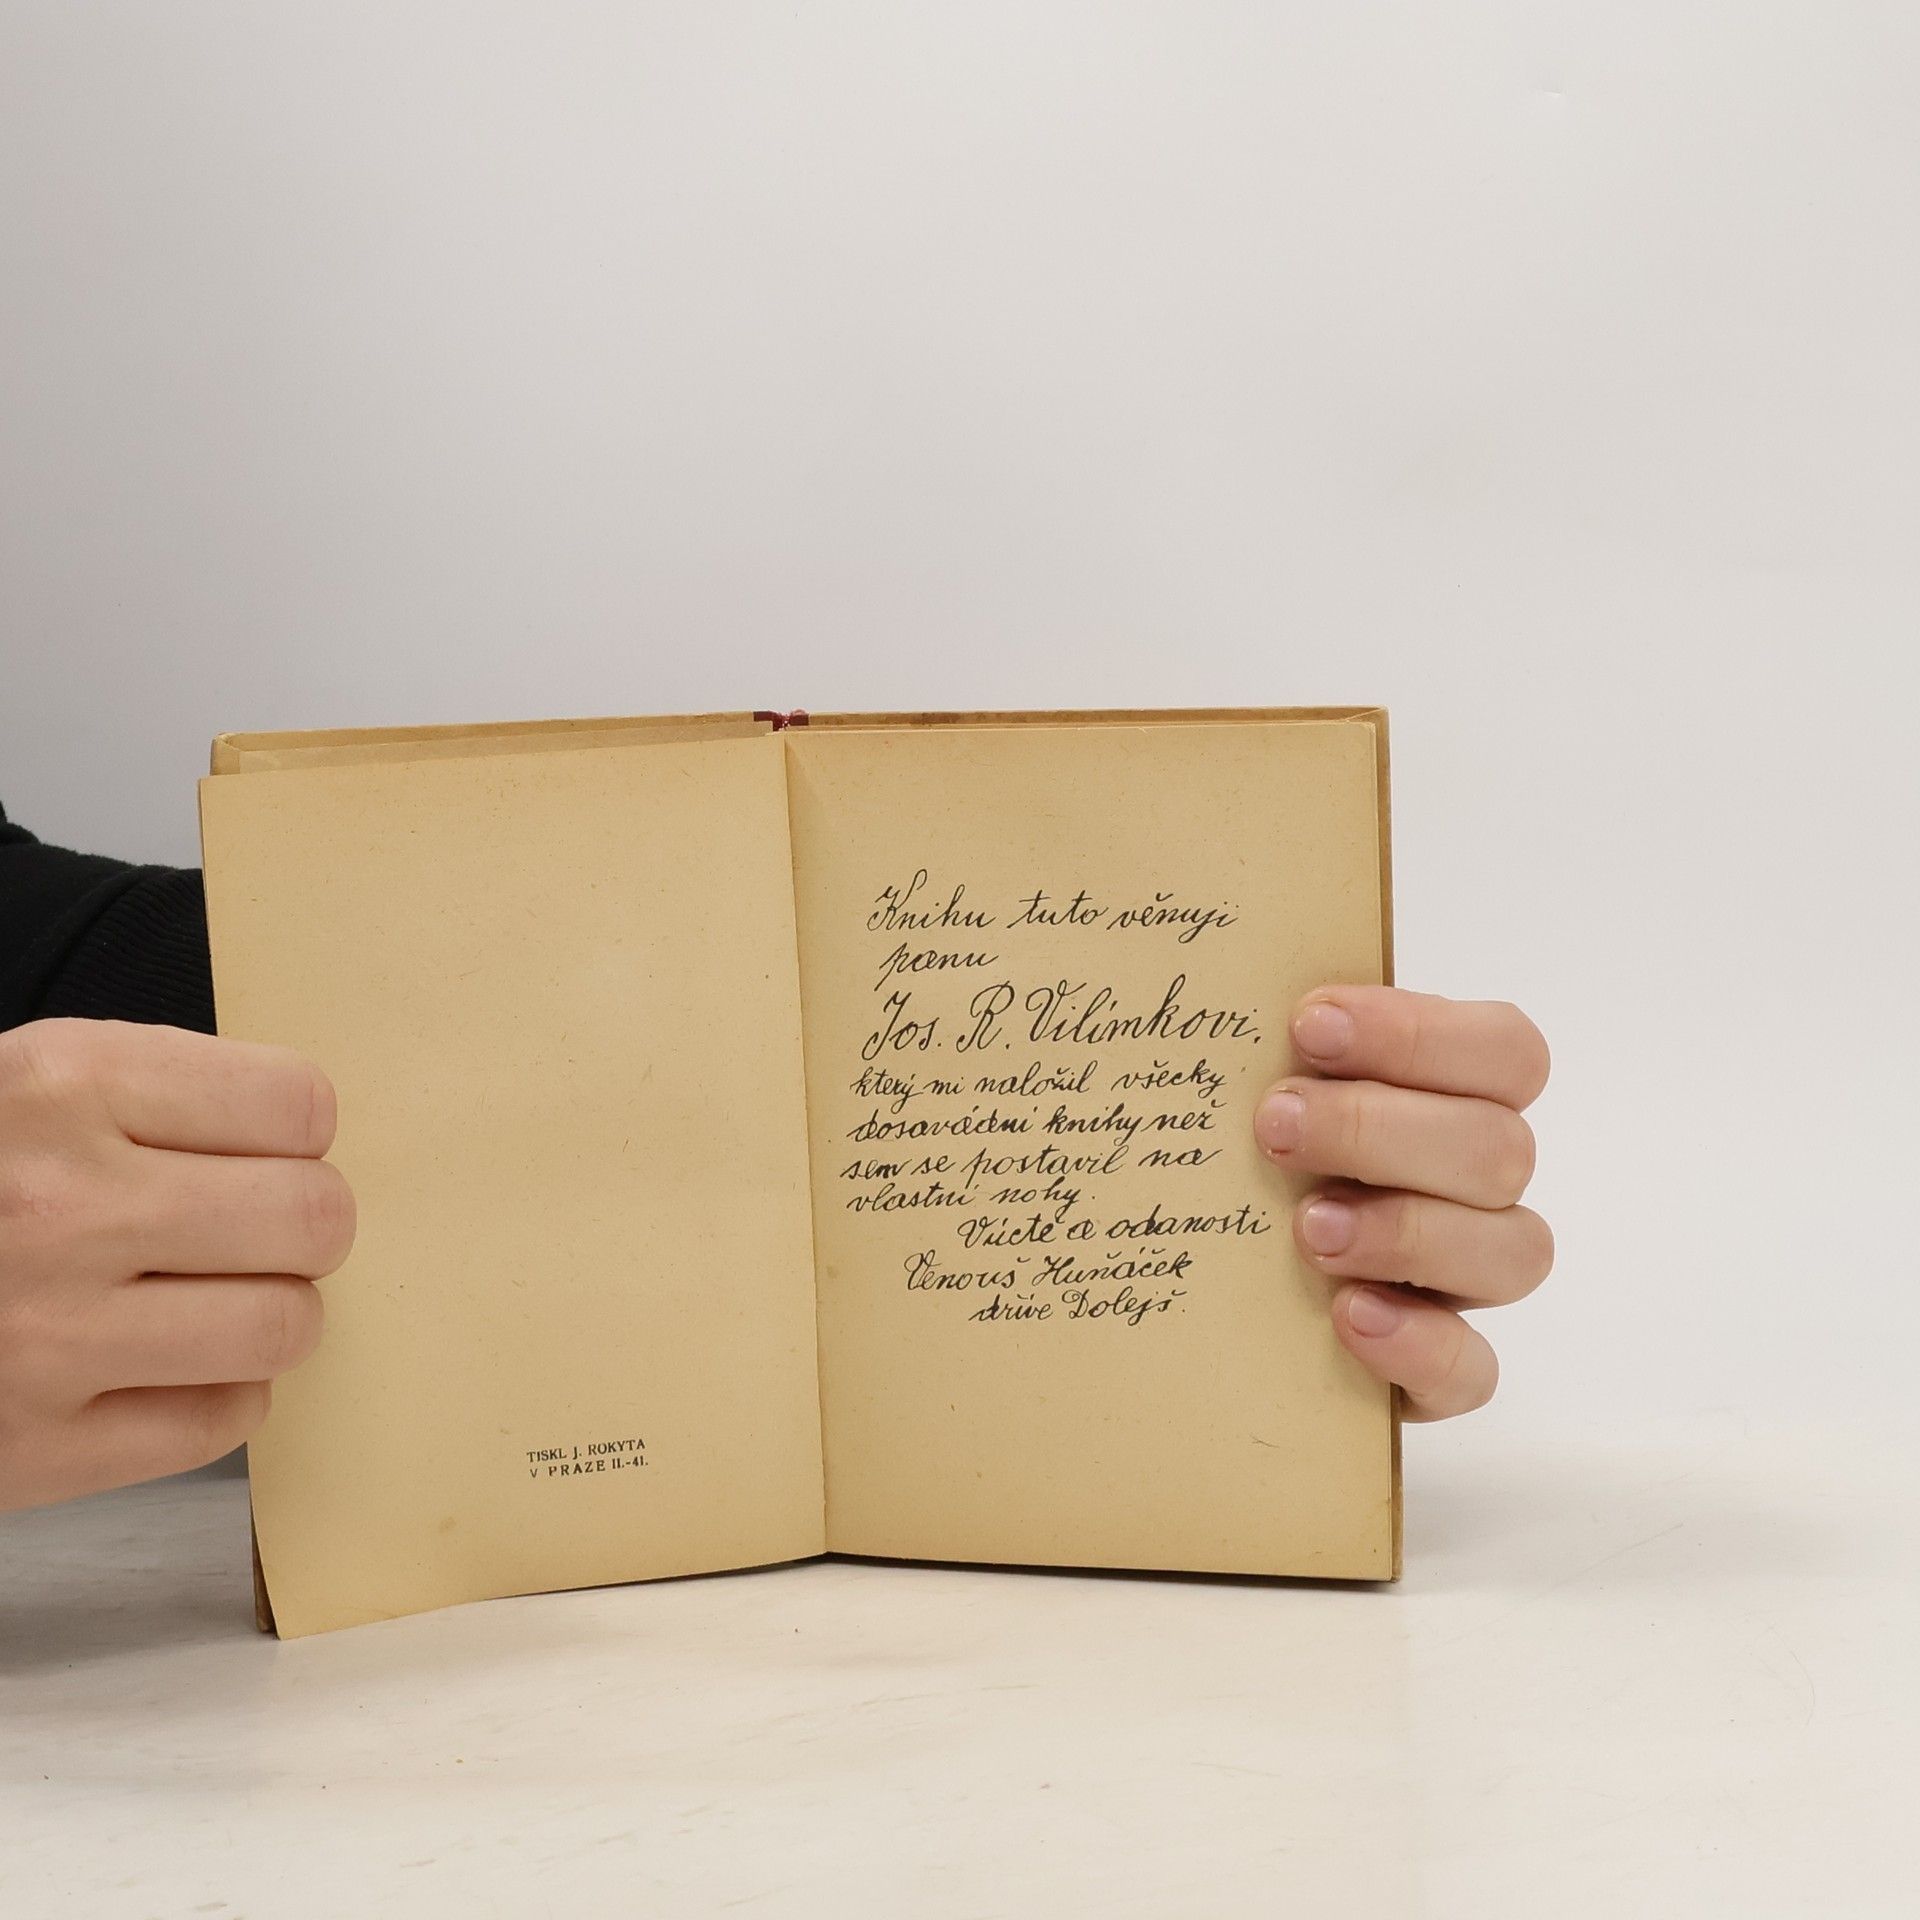 TISKL J. ROKYTA
V PRAZE II.-41.
Knihu tuto věnuji
panu
Jos. R. Vilímkovi,
který mi naložil všecky
dosavádní knihy než
sem se postavil na
vlastní nohy.
Vúctě a odanosti
Venouš Huňáček
dříve Dolejš.